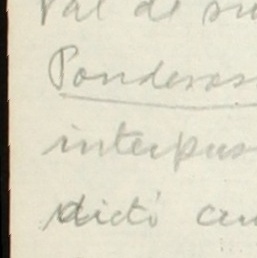 Val de su
Ponderos
interpus
dictó au